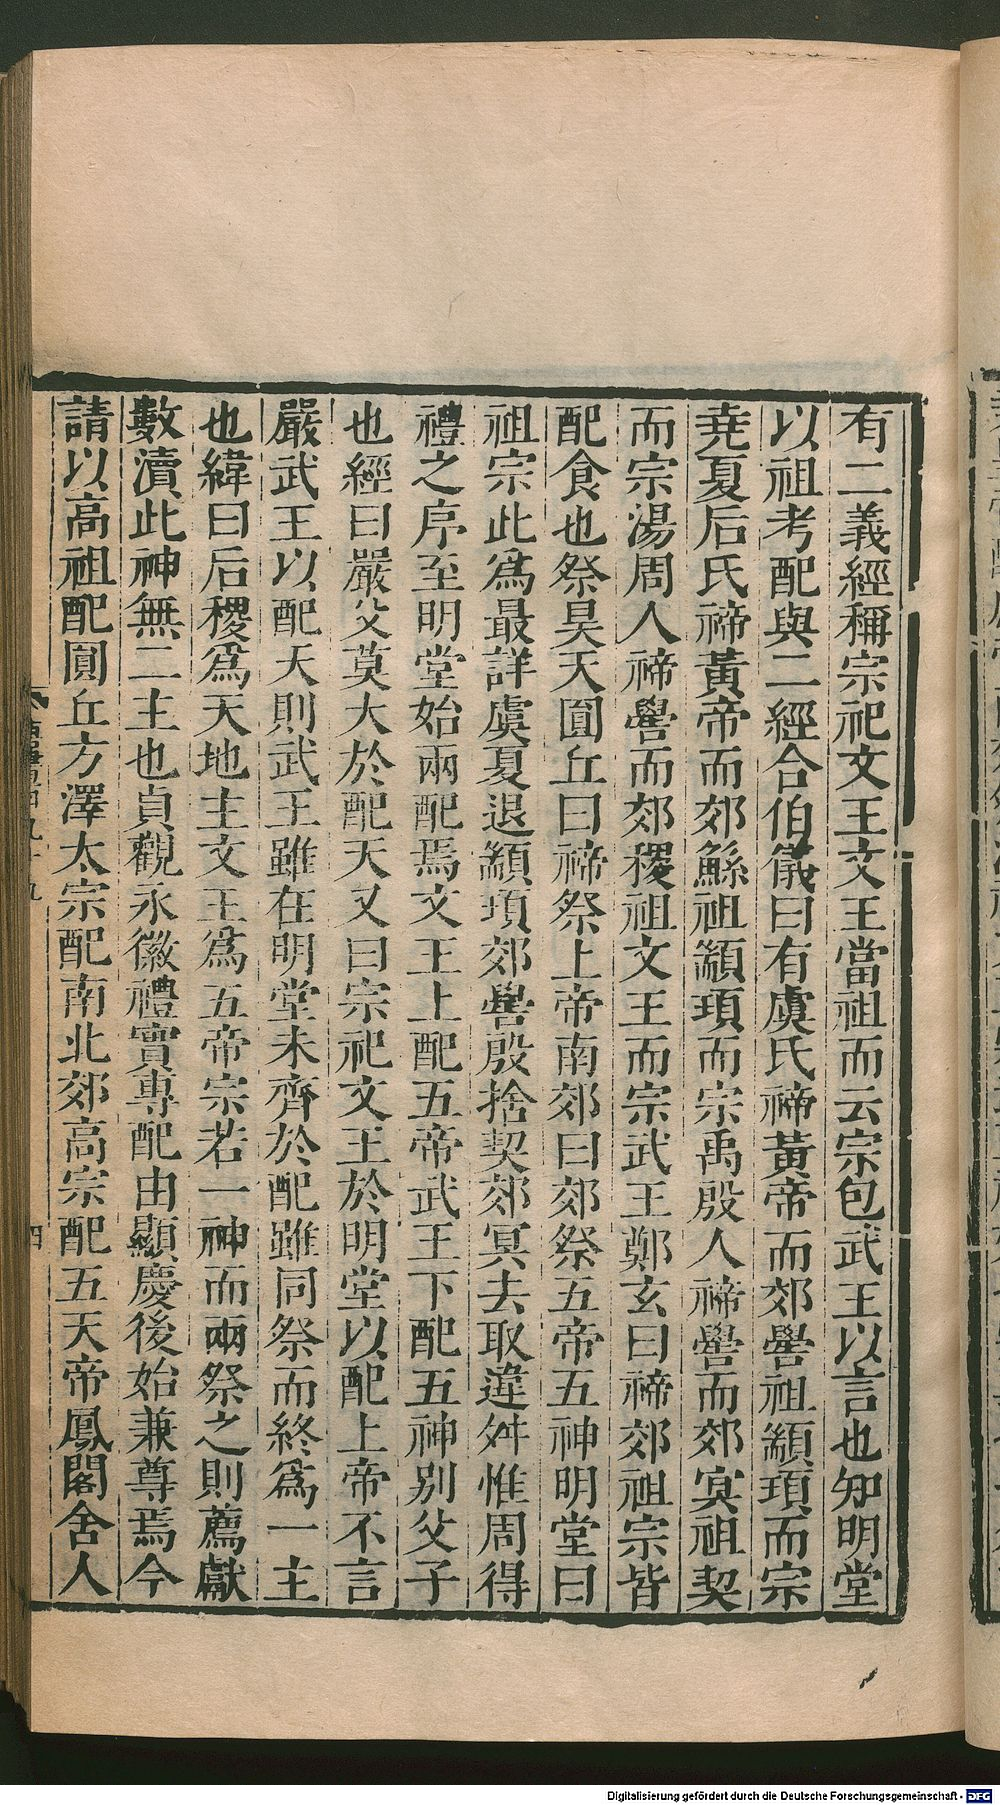 有二義經稱宗祀文王文王當祖而云宗包武王以言也知明堂
以祖考配與二經合伯儀曰有虞氏禘黃帝而郊嚳祖顓頊而宗
堯夏后氏禘黃帝而郊鯀祖顓頊而宗禹殷人禘嚳而郊冥祖契
而宗湯周人禘嚳而郊稷祖文王而宗武王鄭玄曰禘郊祖宗皆
配食也祭昊天圓丘曰禘祭上帝南郊曰郊祭五帝五神明堂曰
祖宗此爲最詳虞夏退顓頊郊嚳殷捨契郊冥去取違舛惟周得
禮之序至明堂始兩配焉文王上配五帝武王下配五神別父子
也經曰嚴父莫大於配天又曰宗祀文王於明堂以配上帝不言
嚴武王以配天則武王雖在明堂未齊於配雖同祭而終爲一主
也緯曰后稷爲天地主文王爲五帝宗若一神而兩祭之則薦獻
數瀆此神無二主也貞觀永徽禮實專配由顯慶後始兼尊焉今
請以高祖配圓丘方澤太宗配南北郊高宗配五天帝鳳閣舍人
四
Digitalisierung gefördert durch die Deutsche Forschungsgemeinschaft - DFG